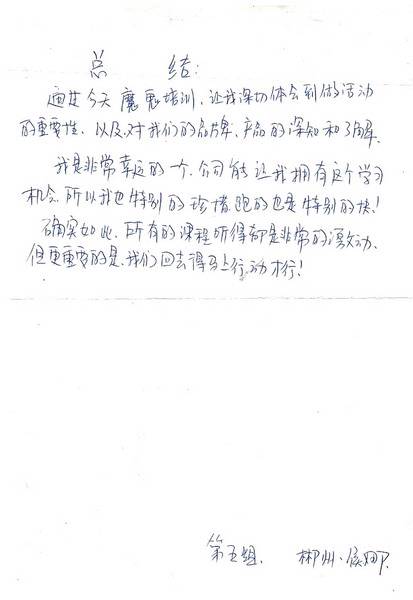 总 结：
通过今天魔鬼培训，让我深切体会到做活动
的重要性，以及对我们的品牌、产品的深知和了解。
我是非常幸运的一个，公司能让我拥有这个学习
机会，所以我也特别的珍惜，跑的也是特别的快！
确实如此，所有的课程听得都是非常的激动，
但更重要的是，我们回去得马上行动才行！
第五组， 郴州·侯娜